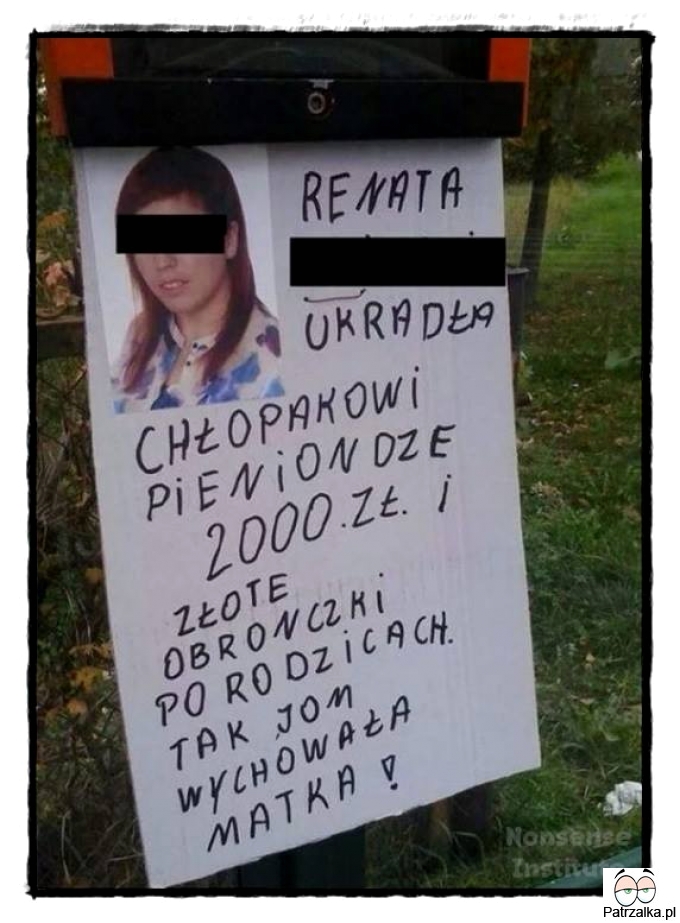 RENATA
UKRADŁA
CHŁOPAKOWI
PIENIONDZE
2000.ZŁ. i
ZŁOTE
OBRONCZKI
PO RODZICACH.
TAK JOM
WYCHOWAŁA
MATKA !
Nonsense
Institute
Patrzalka.pl